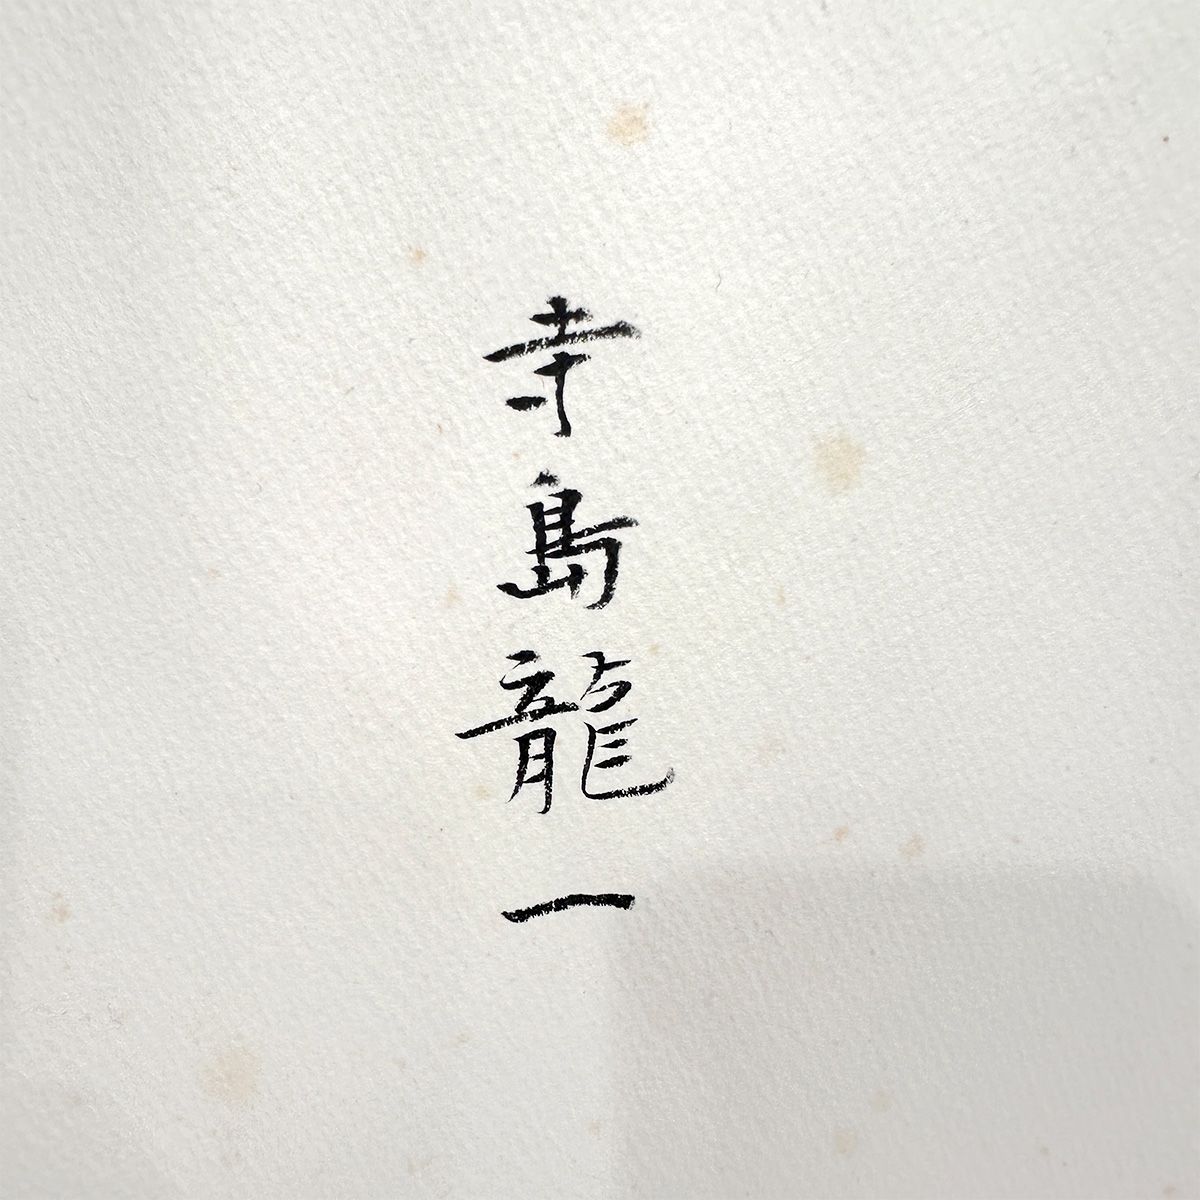 寺島龍一